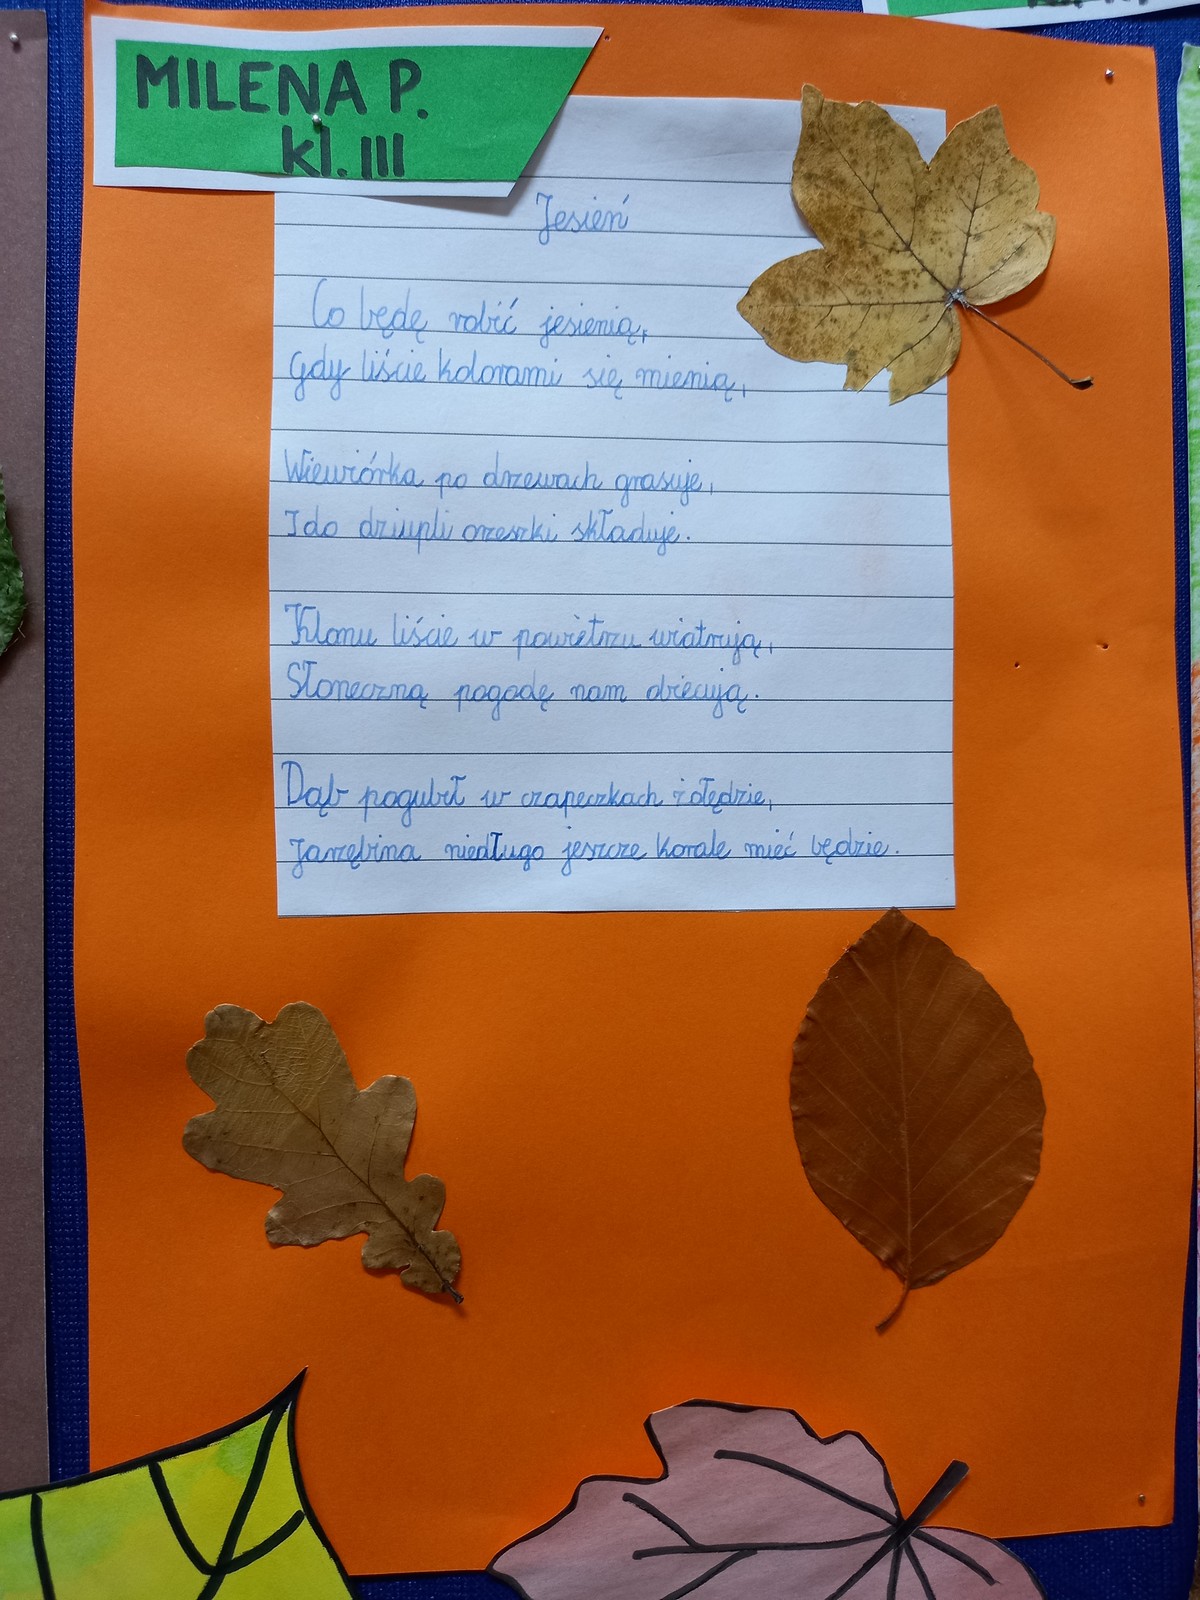 MILENA P.
kl. III
Jesień
Co będę robić jesienią,
Gdy liście kolorami się mienią,
Wiewiórka po drzewach grasuje,
I do dziupli orzeszki składuje.
Klonu liście w powietrzu wiatrują,
Słoneczną pogodę nam obiecują.
Dąb pogubił w czapeczkach żołędzie,
Jarzębina niedługo jeszcze korale mieć będzie.